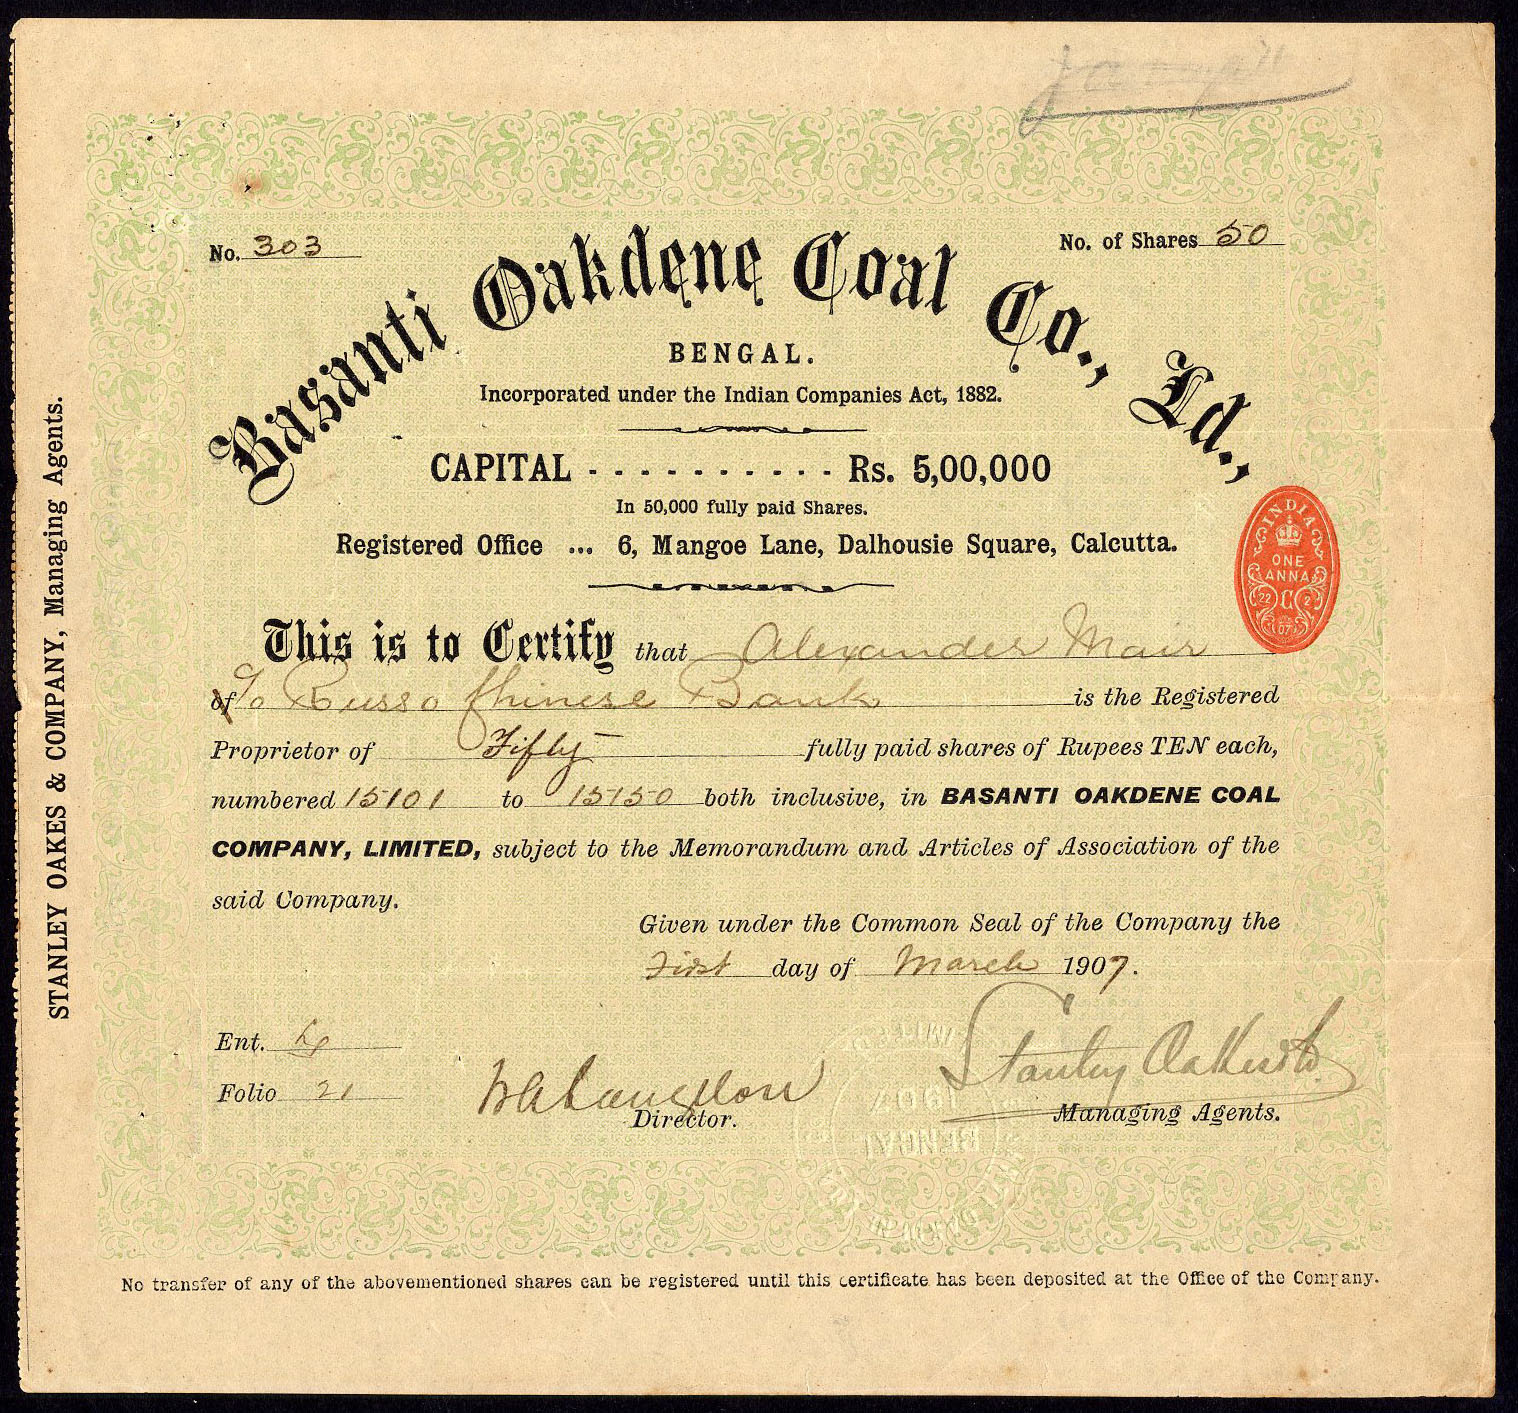 No. 303
No. of Shares 50
Basanti Oakdene Coal Co., Ld.,
BENGAL.
Incorporated under the Indian Companies Act, 1882.
CAPITAL - - - - - - - - - - Rs. 5,00,000
In 50,000 fully paid Shares.
Registered Office ... 6, Mangoe Lane, Dalhousie Square, Calcutta.
INDIA
ONE
ANNA
22 C 2
07
This is to Certify that Alexander Mair
of c/o Russo Chinese Bank is the Registered
Proprietor of Fifty fully paid shares of Rupees TEN each,
numbered 15101 to 15150 both inclusive, in BASANTI OAKDENE COAL
COMPANY, LIMITED, subject to the Memorandum and Articles of Association of the
said Company.
Given under the Common Seal of the Company the
First day of March 1907.
Ent.
Folio 21
Director.
Stanley Oakes & Co.
Managing Agents.
1907
BENGAL
No transfer of any of the abovementioned shares can be registered until this certificate has been deposited at the Office of the Company.
STANLEY OAKES & COMPANY, Managing Agents.